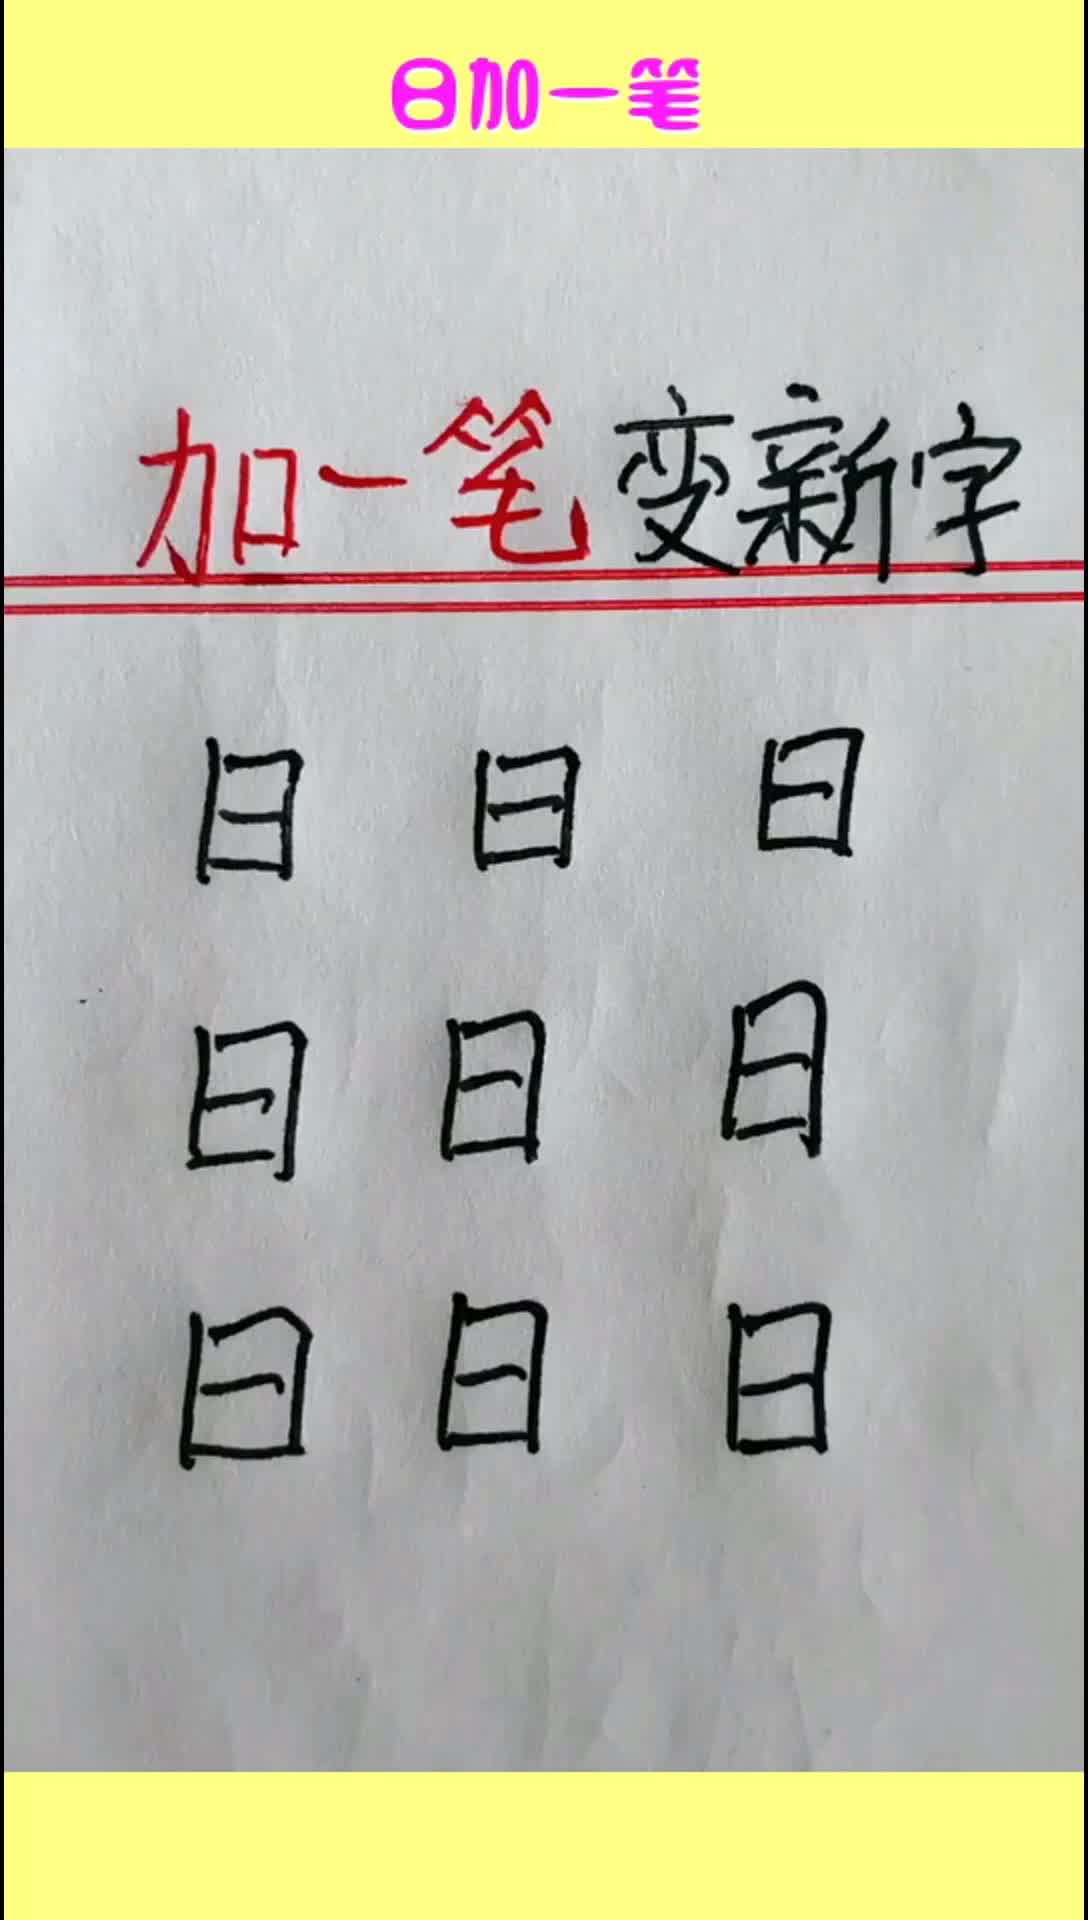 日加一笔
加一笔变新字
日 日 日
日 日 日
日 日 日